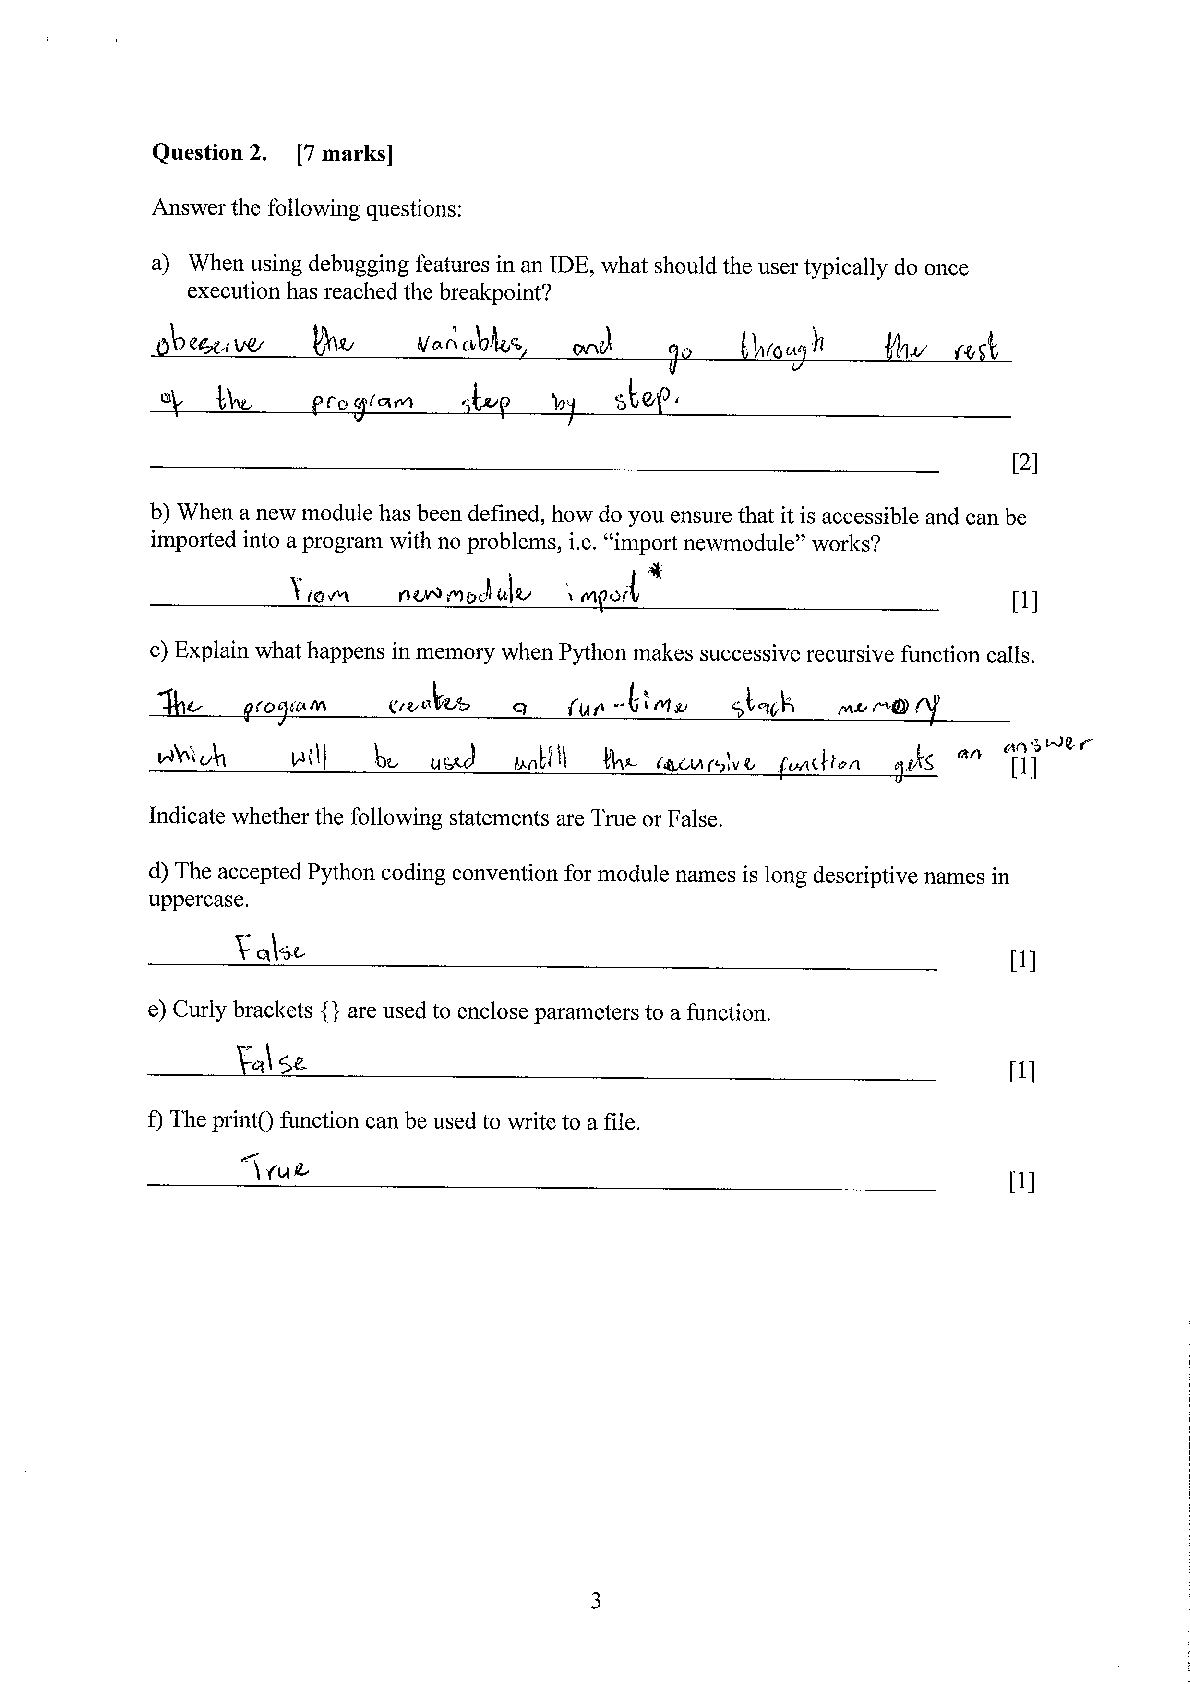 Question 2. [7 marks]
Answer the following questions:
a) When using debugging features in an IDE, what should the user typically do once
execution has reached the breakpoint?
obeserve the variables, and go through the rest
of the program step by step.
[2]
b) When a new module has been defined, how do you ensure that it is accessible and can be
imported into a program with no problems, i.e. “import newmodule” works?
From newmodule import * [1]
c) Explain what happens in memory when Python makes successive recursive function calls.
The program creates a run-time stack memory
which will be used untill the recursive function gets an answer [1]
Indicate whether the following statements are True or False.
d) The accepted Python coding convention for module names is long descriptive names in
uppercase.
False [1]
e) Curly brackets {} are used to enclose parameters to a function.
False [1]
f) The print() function can be used to write to a file.
True [1]
3